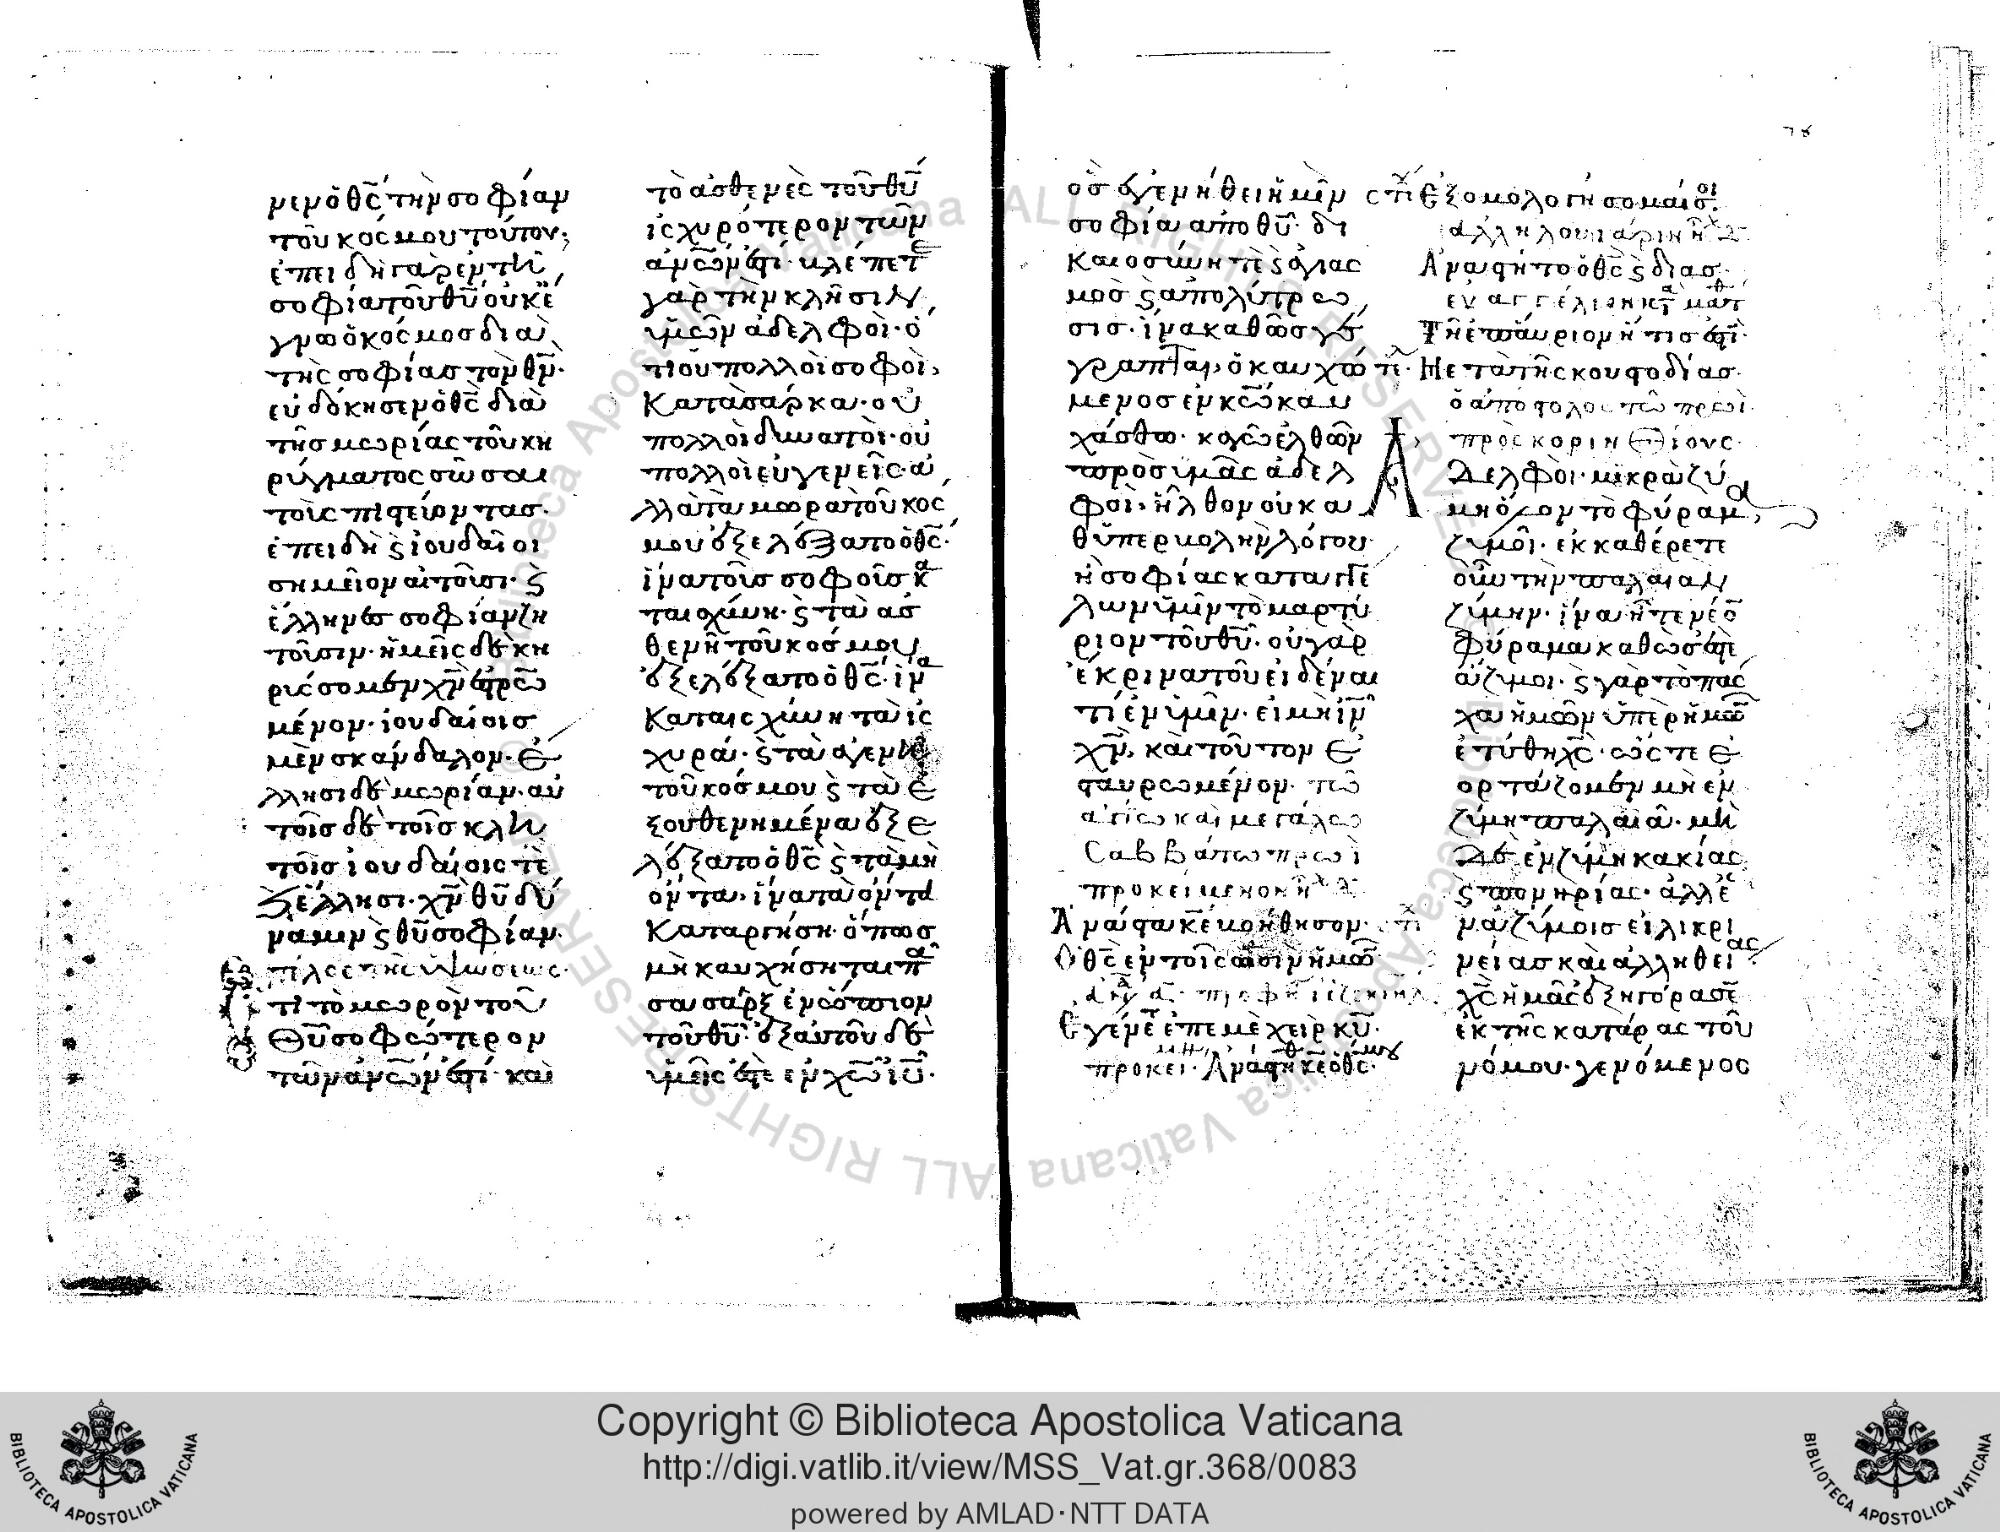 νεν ὁ θ̅ς̅ τὴν σοφίαν
τοῦ κόσμου τούτου;
ἐπειδὴ γὰρ ἐν τῆ
σοφία τοῦ θ̅υ̅ οὐκ ἔ
γνω ὁ κόσμος διὰ
τῆς σοφίας τὸν θ̅ν̅·
εὐδόκησεν ὁ θ̅ς̅ διὰ
τῆς μωρίας τοῦ κη
ρύγματος σῶσαι
τοὺς πιστεύοντας·
ἐπειδὴ ϗ ἰουδαῖοι
σημεῖον αἰτοῦσι· ϗ
ἕλληνες σοφίαν ζη
τοῦσιν· ἡμεῖς δὲ κη
ρύσσομεν χ̅ν̅ ἐστρω
μένον· ἰουδαίοις
μὲν σκάνδαλον· ἕ
λλησι δὲ μωρίαν· αὐ
τοῖς δὲ τοῖς κλη
τοῖς ἰουδαίοις τὲ
ϗ ἕλλησι· χ̅ν̅ θ̅υ̅ δύ
ναμιν ϗ θ̅υ̅ σοφίαν·
ὅτι τὸ μωρὸν τοῦ
θ̅υ̅ σοφώτερον
τῶν ἀν̅ω̅ν ἐστί· καὶ
τὸ ἀσθενὲς τοῦ θ̅υ̅
ἰσχυρότερον τῶν
ἀν̅ω̅ν ἐστί· βλέπετε
γὰρ τὴν κλῆσιν
ὑμῶν ἀδελφοὶ· ὅ
τι οὐ πολλοὶ σοφοὶ,
κατὰ σάρκα· οὐ
πολλοὶ δυνατοὶ· οὐ
πολλοὶ εὐγενεῖς· ἀ
λλὰ τὰ μωρὰ τοῦ κόσ
μου ἐξελέξατο ὁ θ̅ς̅·
ἵνα τοὺς σοφοὺς κα
ταισχύνη· ϗ τὰ ἀσ
θενῆ τοῦ κόσμου
ἐξελέξατο ὁ θ̅ς̅· ἵνα
καταισχύνη τὰ ἰσ
χυρά· ϗ τὰ ἀγενῆ
τοῦ κόσμου ϗ τὰ ἐ
ξουθενημένα ἐξε
λέξατο ὁ θ̅ς̅ ϗ τὰ μὴ
ὄντα, ἵνα τὰ ὄντα
καταργήση· ὅπως
μὴ καυχήσηται πα
σα σὰρξ ἐνώπιον
τοῦ θ̅υ̅· ἐξ αὐτοῦ δὲ
ὑμεῖς ἐστὲ ἐν χ̅ω̅ ι̅υ̅·
ὃς ἐγενήθει ἡμῖν
σοφία ἀπὸ θ̅υ̅· δι
καιοσύνη τὲ ϗ ἁγιας
μος ϗ ἀπολύτρω
σις· ἵνα καθὼς γέ
γραπται, ὁ καυχώ
μενος ἐν κ̅ω̅ καυ
χάσθω· κἀγὼ ἐλθὼν
πρὸς ὑμᾶς ἀδελ
φοὶ· ἦλθον οὐ κα
θ ὑπερβολὴν λόγου
ἢ σοφίας καταγγέ
λων ὑμῖν τὸ μαρτύ
ριον τοῦ θ̅υ̅· οὐ γὰρ
ἔκρινα τοῦ εἰδέναι
τί ἐν ὑμῖν· εἰ μὴ ἰ̅ν̅
χ̅ν̅, καὶ τοῦτον ἐ
σταυρωμένον· τῶ
ἁγίω καὶ μεγάλω
σαββάτω πρωὶ
προκείμενον
Ἀνάστα κ̅ε̅ βοήθησον·
Ὁ θ̅ς̅ ἐν τοῖς ὠσὶν ἡμῶν
Ἐγένετο ἐπ ἐμὲ χεὶρ κ̅υ̅·
προκεί· Ἀνάστηθι κ̅ε̅ ὁ θ̅ς̅ μου
στι Ἐξομολογήσομαί σοι·
ἀλληλουιάριον
Ἀναστήτω ὁ θ̅ς̅ ϗ διασ·
εὐαγγέλιον κτ ματθ
Τῆ ἐπαύριον ἥτις ἐστὶ·
στι· Μετὰ τῆς κουστοδίας·
ὁ ἀπόστολος τῶ πρωὶ·
πρὸς κορινθίους·
Ἀδελφοὶ· μικρὰ ζύ
μη ὅλον τὸ φύραμα
ζυμοῖ· ἐκκαθάρετε
οὖν τὴν παλαιὰν
ζύμην· ἵνα ἦτε νέον
φύραμα καθώς ἐστε
ἄζυμοι· ϗ γὰρ τὸ πάσ
χα ἡμῶν ὑπὲρ ἡμῶν
ἐτύθη χ̅ς̅· ὥστε ἑ
ορτάζομεν μὴ ἐν
ζύμη παλαιᾶ· μὴ
δὲ ἐν ζύμη κακίας
ϗ πονηρίας· ἀλλ ἐ
ν ἀζύμοις εἰλικρι
νείας καὶ ἀλληθείας·
χ̅ς̅ ἡμᾶς ἐξηγόρασεν
ἐκ τῆς κατάρας τοῦ
νόμου· γενόμενος
Copyright © Biblioteca Apostolica Vaticana
http://digi.vatlib.it/view/MSS_Vat.gr.368/0083
powered by AMLAD·NTT DATA
BIBLIOTECA APOSTOLICA VATICANA
BIBLIOTECA APOSTOLICA VATICANA